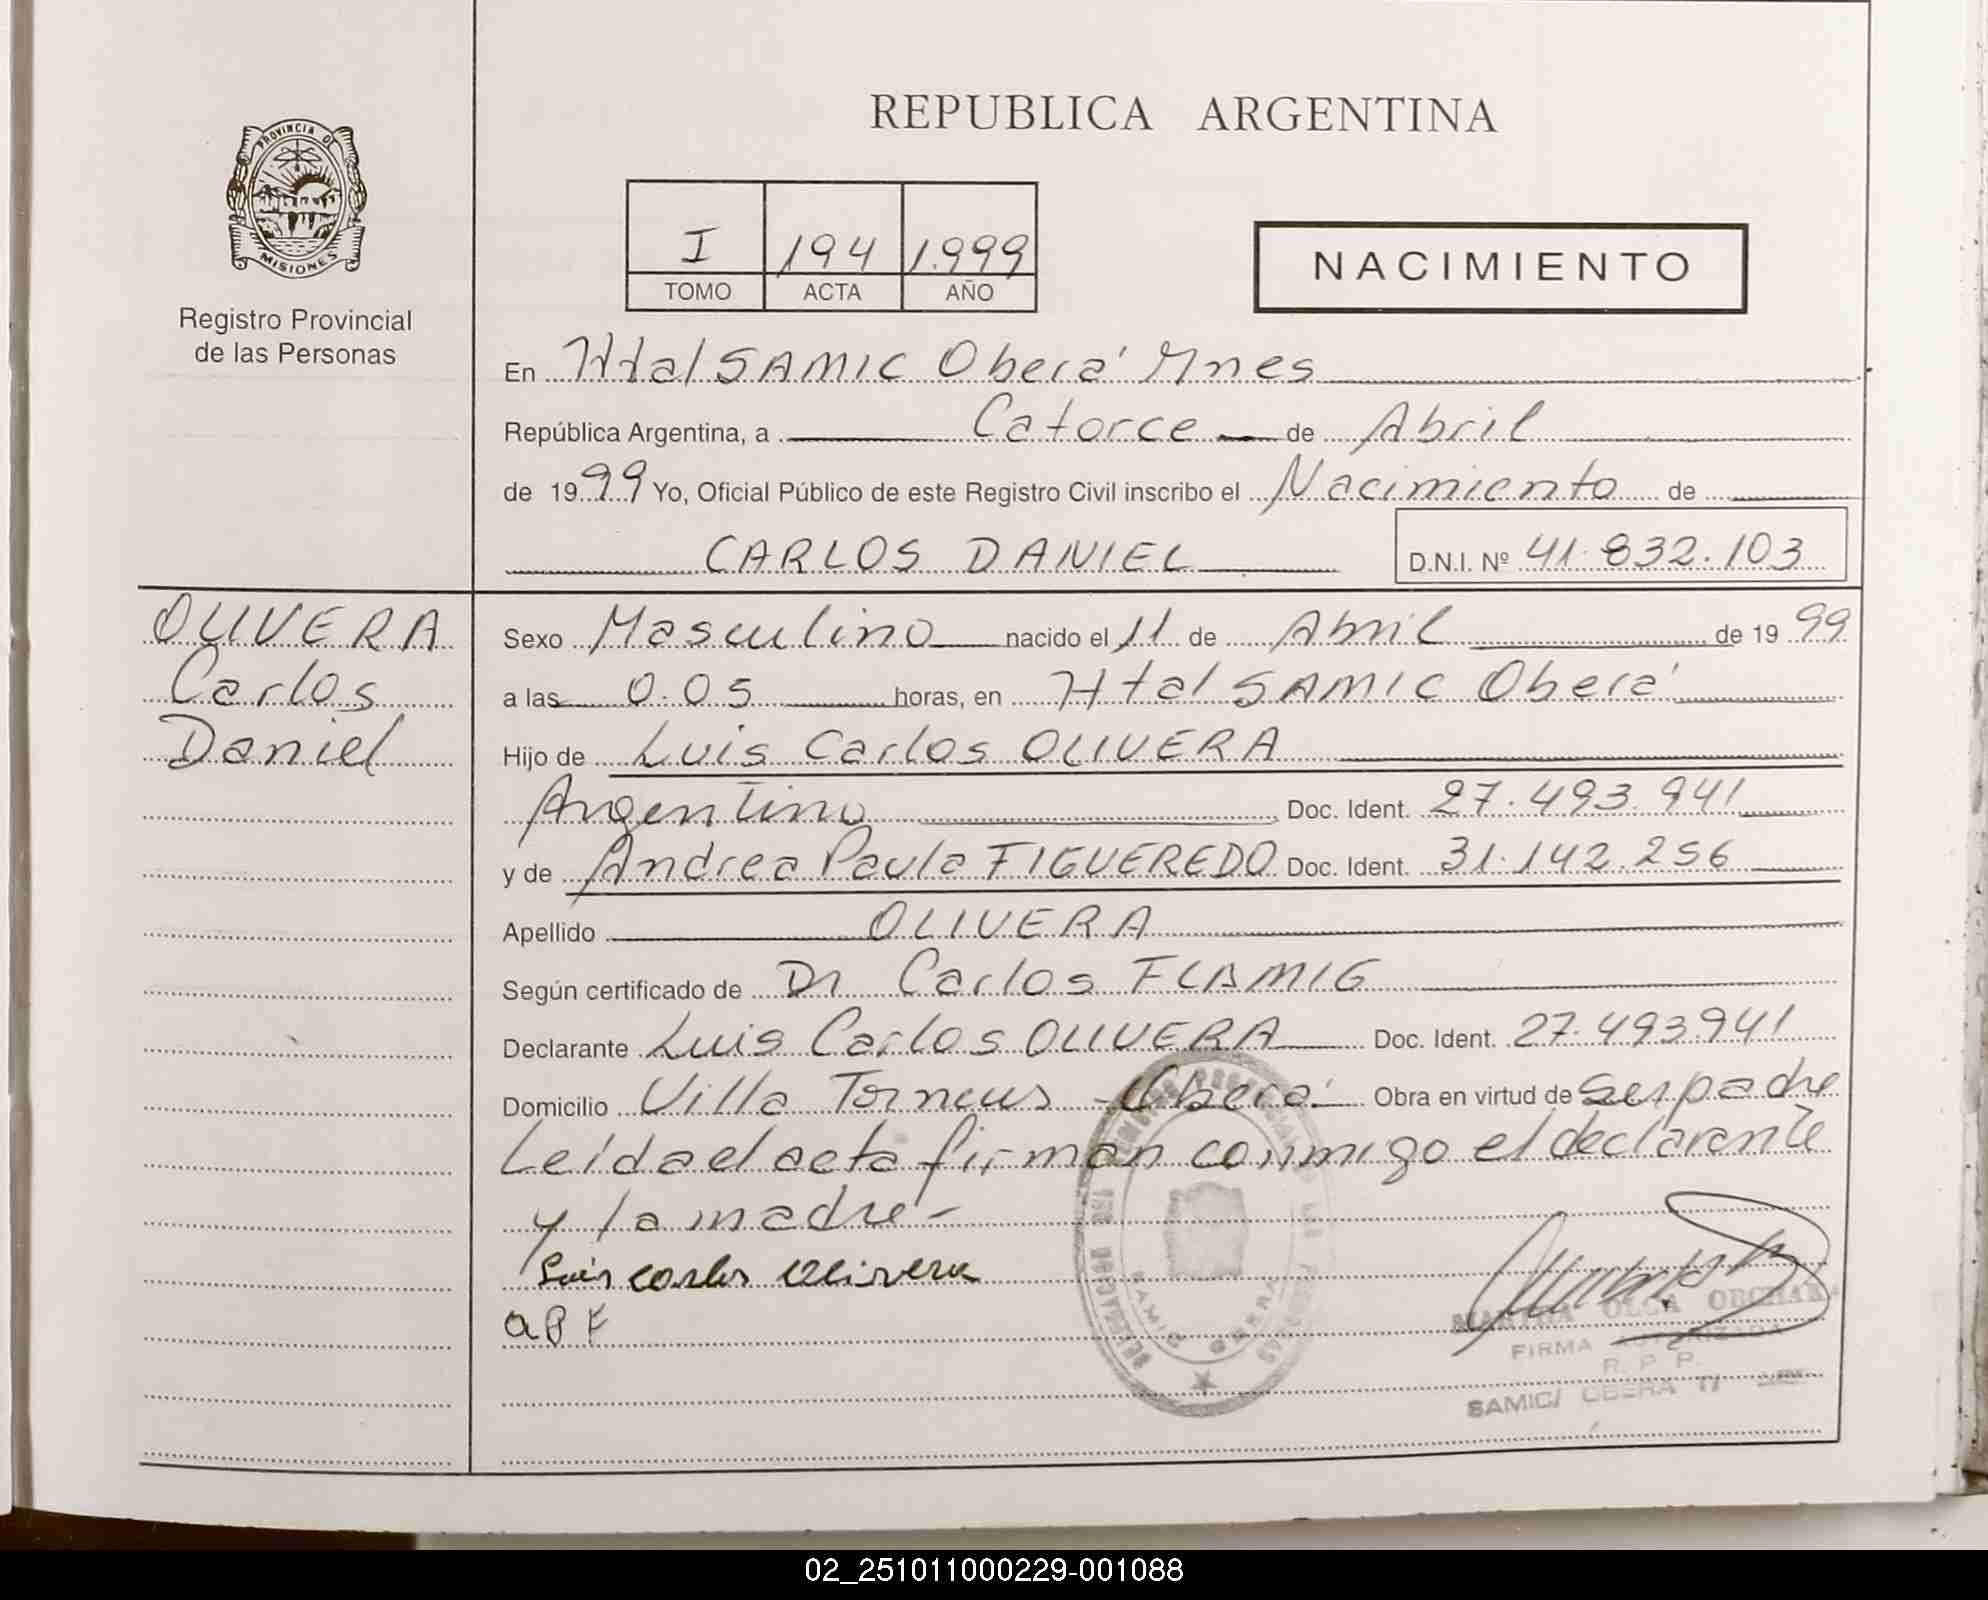 PROVINCIA DE
MISIONES
Registro Provincial
de las Personas
REPUBLICA ARGENTINA
I 194 1.999
TOMO ACTA AÑO
NACIMIENTO
En Htal SAMIC Oberá Mnes
República Argentina, a Catorce de Abril
de 1999 Yo, Oficial Público de este Registro Civil inscribo el Nacimiento de
CARLOS DANIEL D.N.I. Nº 41.832.103
OLIVERA
Carlos
Daniel
Sexo Masculino nacido el 11 de Abril de 1999
a las 0.05 horas, en Htal SAMIC Oberá
Hijo de Luis Carlos OLIVERA
Argentino Doc. Ident. 27.493.941
y de Andrea Paula FIGUEREDO Doc. Ident. 31.142.256
Apellido OLIVERA
Según certificado de Dr Carlos FLAMIG
Declarante Luis Carlos OLIVERA Doc. Ident. 27.493.941
Domicilio Villa Oberá Obra en virtud de ser padre
Leída el acta firman conmigo el declarante
y la madre -
Luis Carlos Olivera
a P F
MARTHA OLGA
FIRMA AUTORIZADA
R. P. P.
SAMIC/ OBERA
02_251011000229-001088